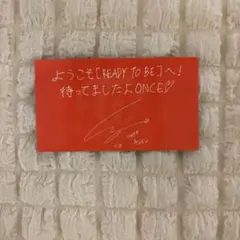 ようこそ[READY TO BE]へ!
待ってましたよONCE♡